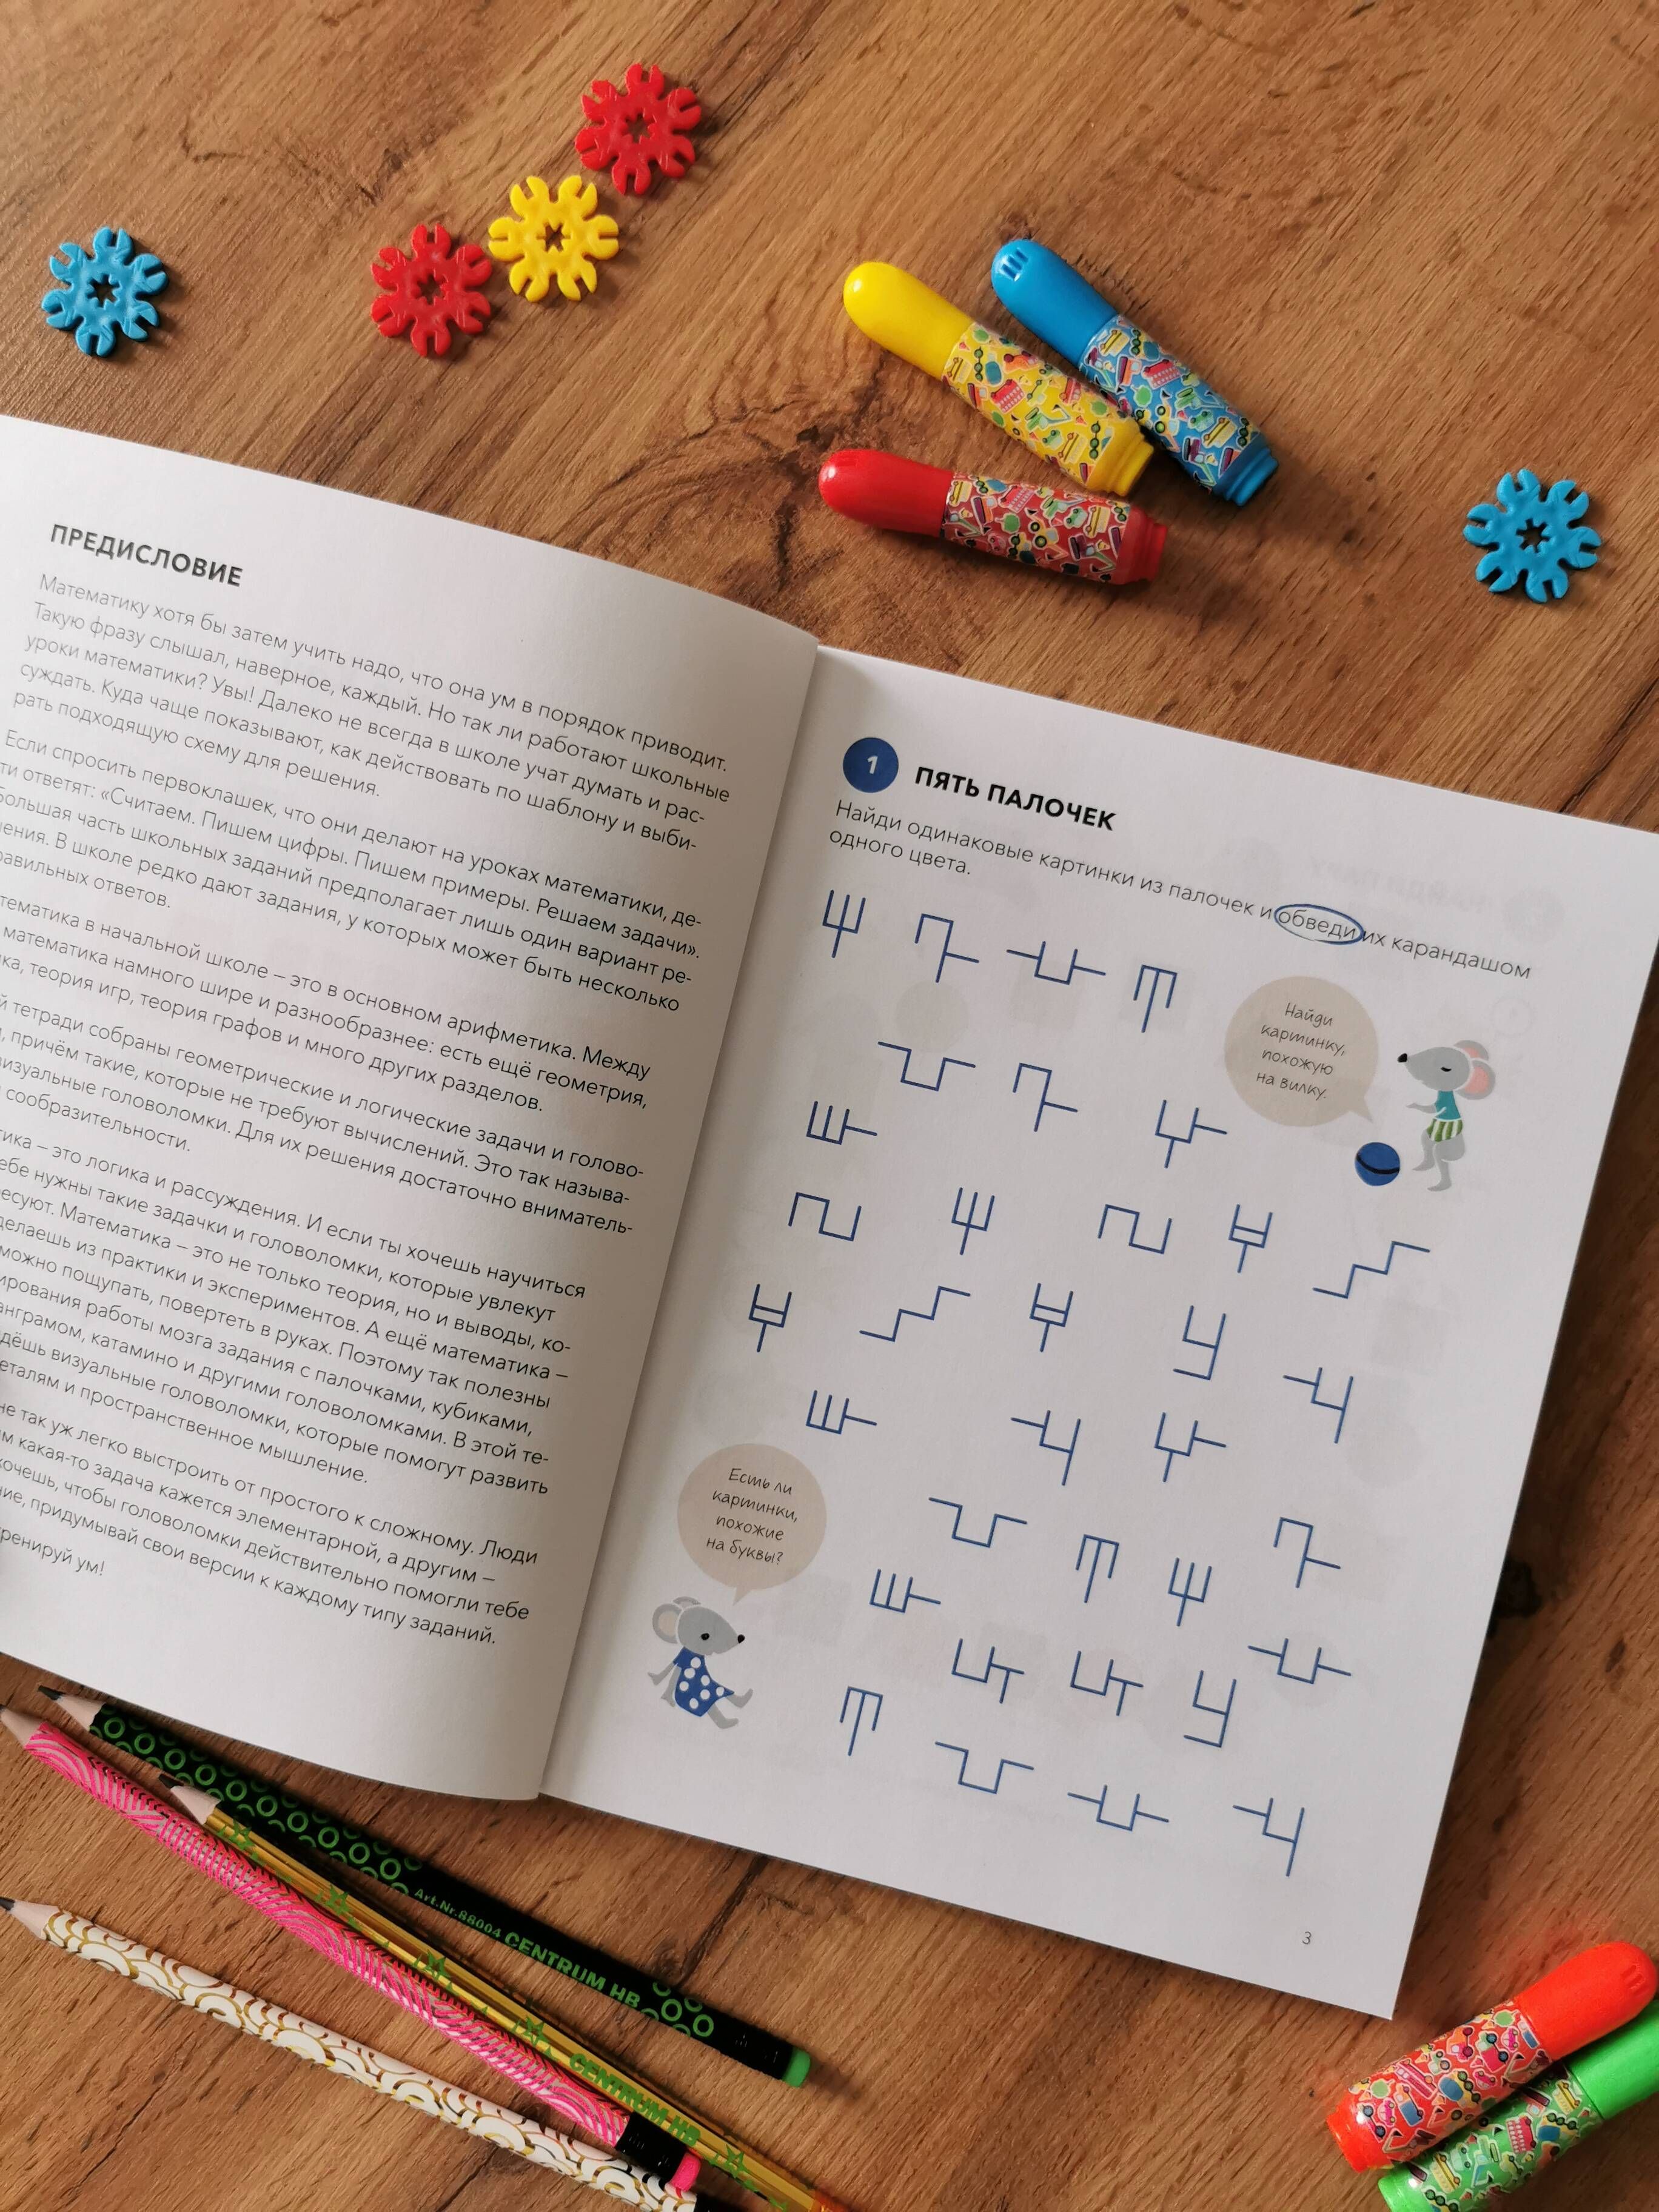 ПРЕДИСЛОВИЕ
Математику хотя бы затем учить надо, что она ум в порядок приводит.
Такую фразу слышал, наверное, каждый. Но так ли работают школьные
уроки математики? Увы! Далеко не всегда в школе учат думать и рас-
суждать. Куда чаще показывают, как действовать по шаблону и выби-
рать подходящую схему для решения.
Если спросить первоклашек, что они делают на уроках математики, де-
ти ответят: «Считаем. Пишем цифры. Пишем примеры. Решаем задачи».
большая часть школьных заданий предполагает лишь один вариант ре-
шения. В школе редко дают задания, у которых может быть несколько
правильных ответов.
тематика в начальной школе – это в основном арифметика. Между
математика намного шире и разнообразнее: есть ещё геометрия,
ка, теория игр, теория графов и много других разделов.
й тетради собраны геометрические и логические задачи и голово-
, причём такие, которые не требуют вычислений. Это так называ-
визуальные головоломки. Для их решения достаточно вниматель-
сообразительности.
тика – это логика и рассуждения. И если ты хочешь научиться
ебе нужны такие задачки и головоломки, которые увлекут
ресуют. Математика – это не только теория, но и выводы, ко-
делаешь из практики и экспериментов. А ещё математика –
можно пощупать, повертеть в руках. Поэтому так полезны
ирования работы мозга задания с палочками, кубиками,
анграмом, катамино и другими головоломками. В этой те-
дёшь визуальные головоломки, которые помогут развить
еталям и пространственное мышление.
не так уж легко выстроить от простого к сложному. Люди
м какая-то задача кажется элементарной, а другим –
хочешь, чтобы головоломки действительно помогли тебе
ние, придумывай свои версии к каждому типу заданий.
ренируй ум!
1 ПЯТЬ ПАЛОЧЕК
Найди одинаковые картинки из палочек и обведи их карандашом
одного цвета.
Найди
картинку,
похожую
на вилку.
Есть ли
картинки,
похожие
на буквы?
3
Art.Nr.88004 CENTRUM HB
CENTRUM HB